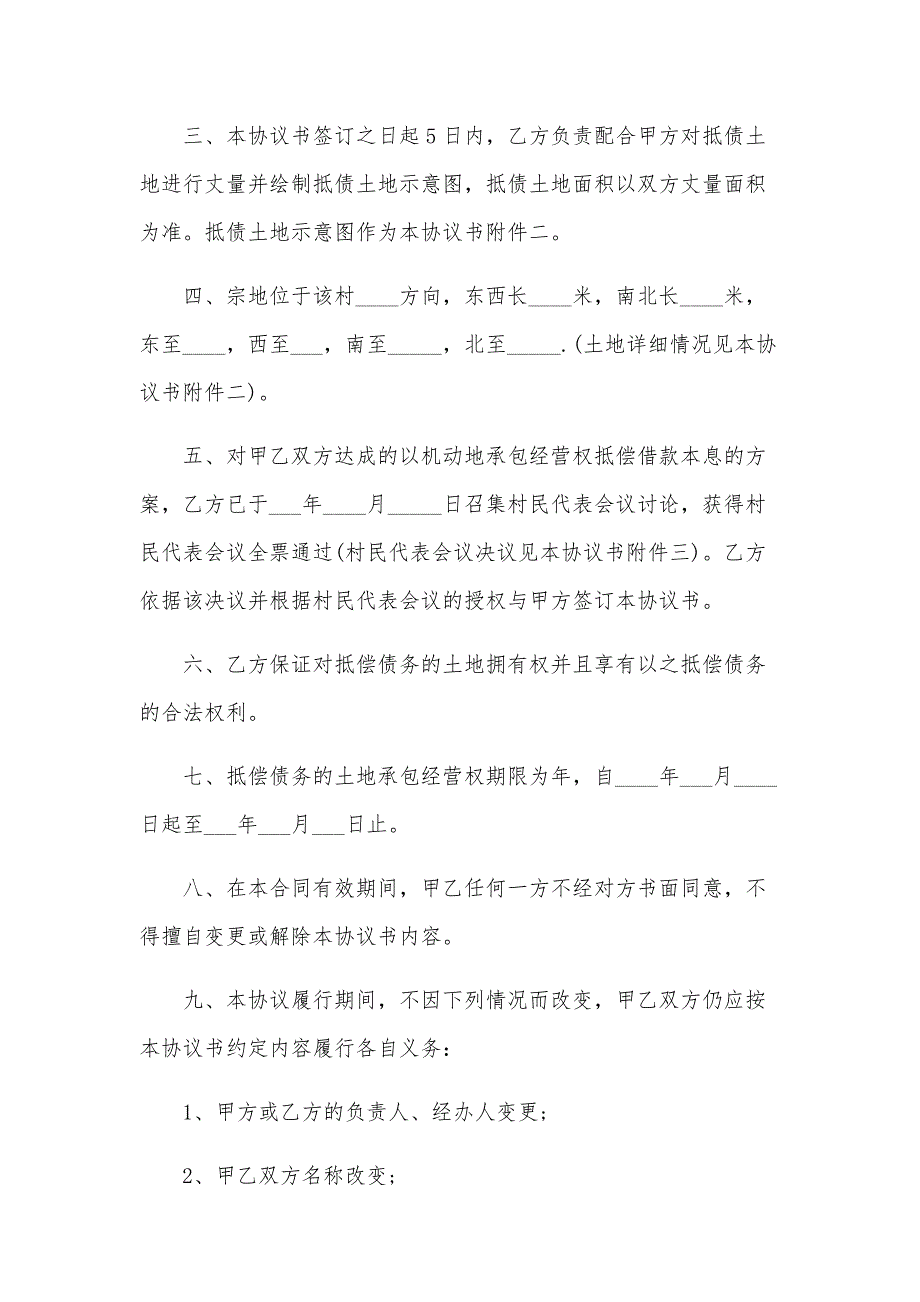 三、本协议书签订之日起 5 日内，乙方负责配合甲方对抵债土
地进行丈量并绘制抵债土地示意图，抵债土地面积以双方丈量面积
为准。抵债土地示意图作为本协议书附件二。
四、宗地位于该村____方向，东西长____米，南北长____米，
东至____，西至___，南至_____，北至_____.(土地详细情况见本协
议书附件二)。
五、对甲乙双方达成的以机动地承包经营权抵偿借款本息的方
案，乙方已于___年____月_____日召集村民代表会议讨论，获得村
民代表会议全票通过(村民代表会议决议见本协议书附件三)。乙方
依据该决议并根据村民代表会议的授权与甲方签订本协议书。
六、乙方保证对抵偿债务的土地拥有权并且享有以之抵偿债务
的合法权利。
七、抵偿债务的土地承包经营权期限为年，自____年___月____
日起至___年___月___日止。
八、在本合同有效期间，甲乙任何一方不经对方书面同意，不
得擅自变更或解除本协议书内容。
九、本协议履行期间，不因下列情况而改变，甲乙双方仍应按
本协议书约定内容履行各自义务：
1、甲方或乙方的负责人、经办人变更;
2、甲乙双方名称改变;